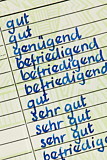 gut
gut
genügend
befriedigend
befriedigend
befriedigend
gut
sehr gut
sehr gut
sehr gut
befriedigend